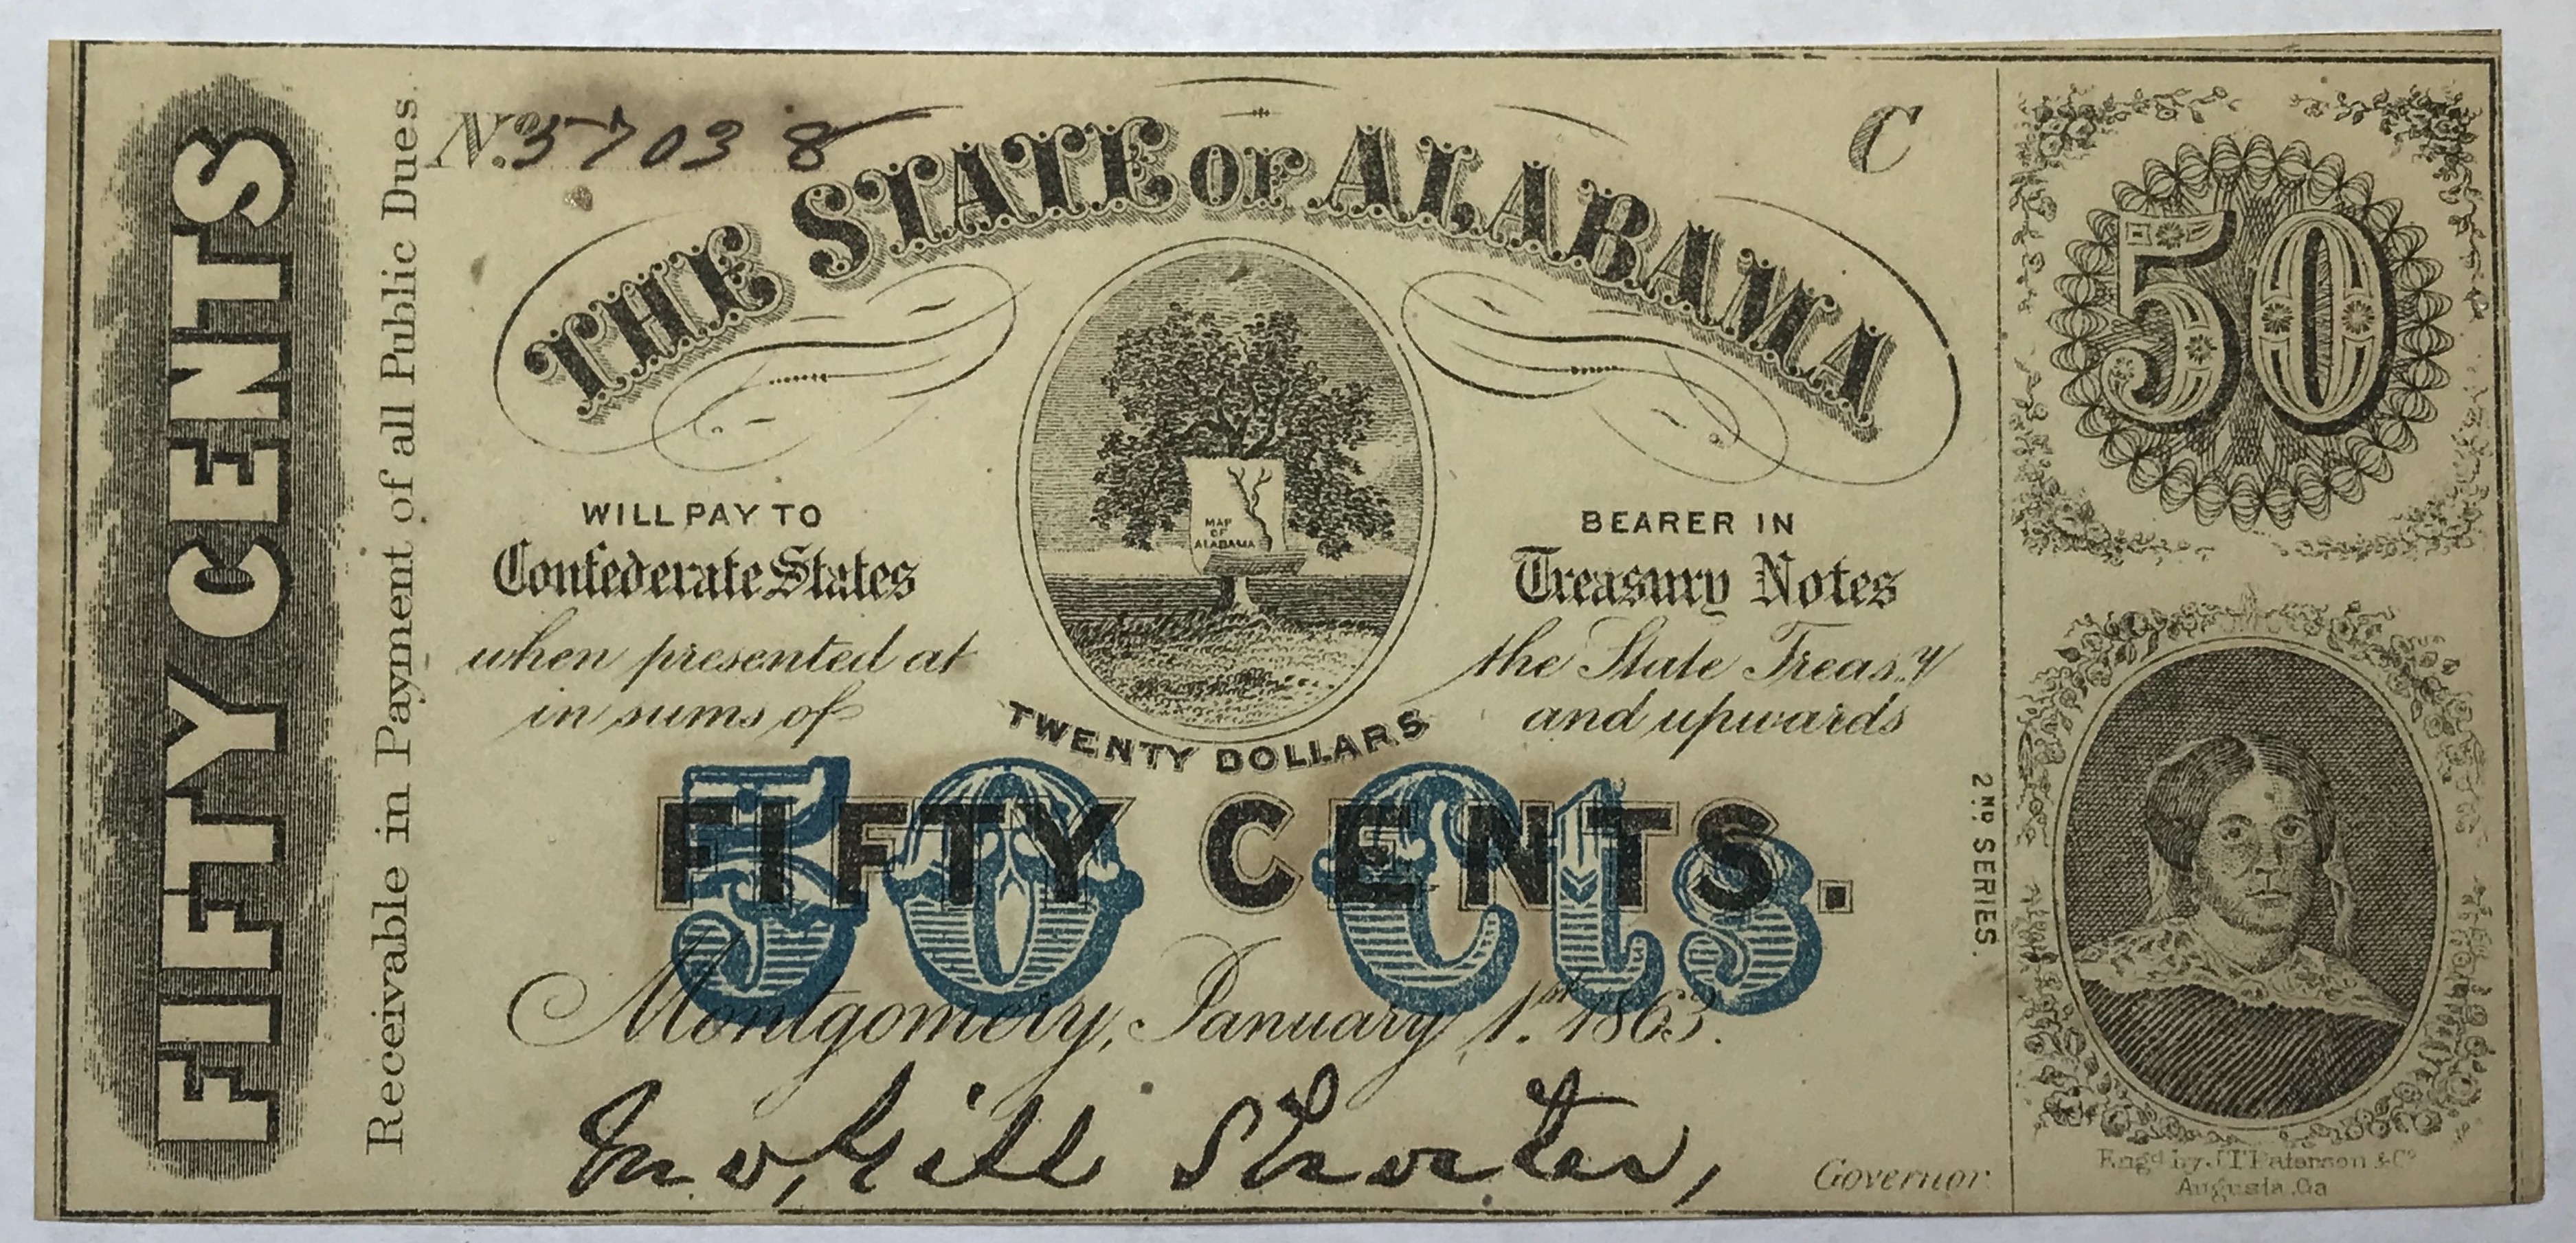 FIFTY CENTS
Receivable in Payment of all Public Dues.
No. 57038
C
THE STATE OF ALABAMA
50
MAP
OF
ALABAMA
WILL PAY TO BEARER IN
Confederate States Treasury Notes
when presented at the State Treasy
in sums of TWENTY DOLLARS and upwards
FIFTY CENTS.
50 Cts
2ND SERIES.
Montgomery, January 1st 1863.
Jno, Gill Shorter,
Governor
Engd by J T Paterson & Co
Augusta, Ga